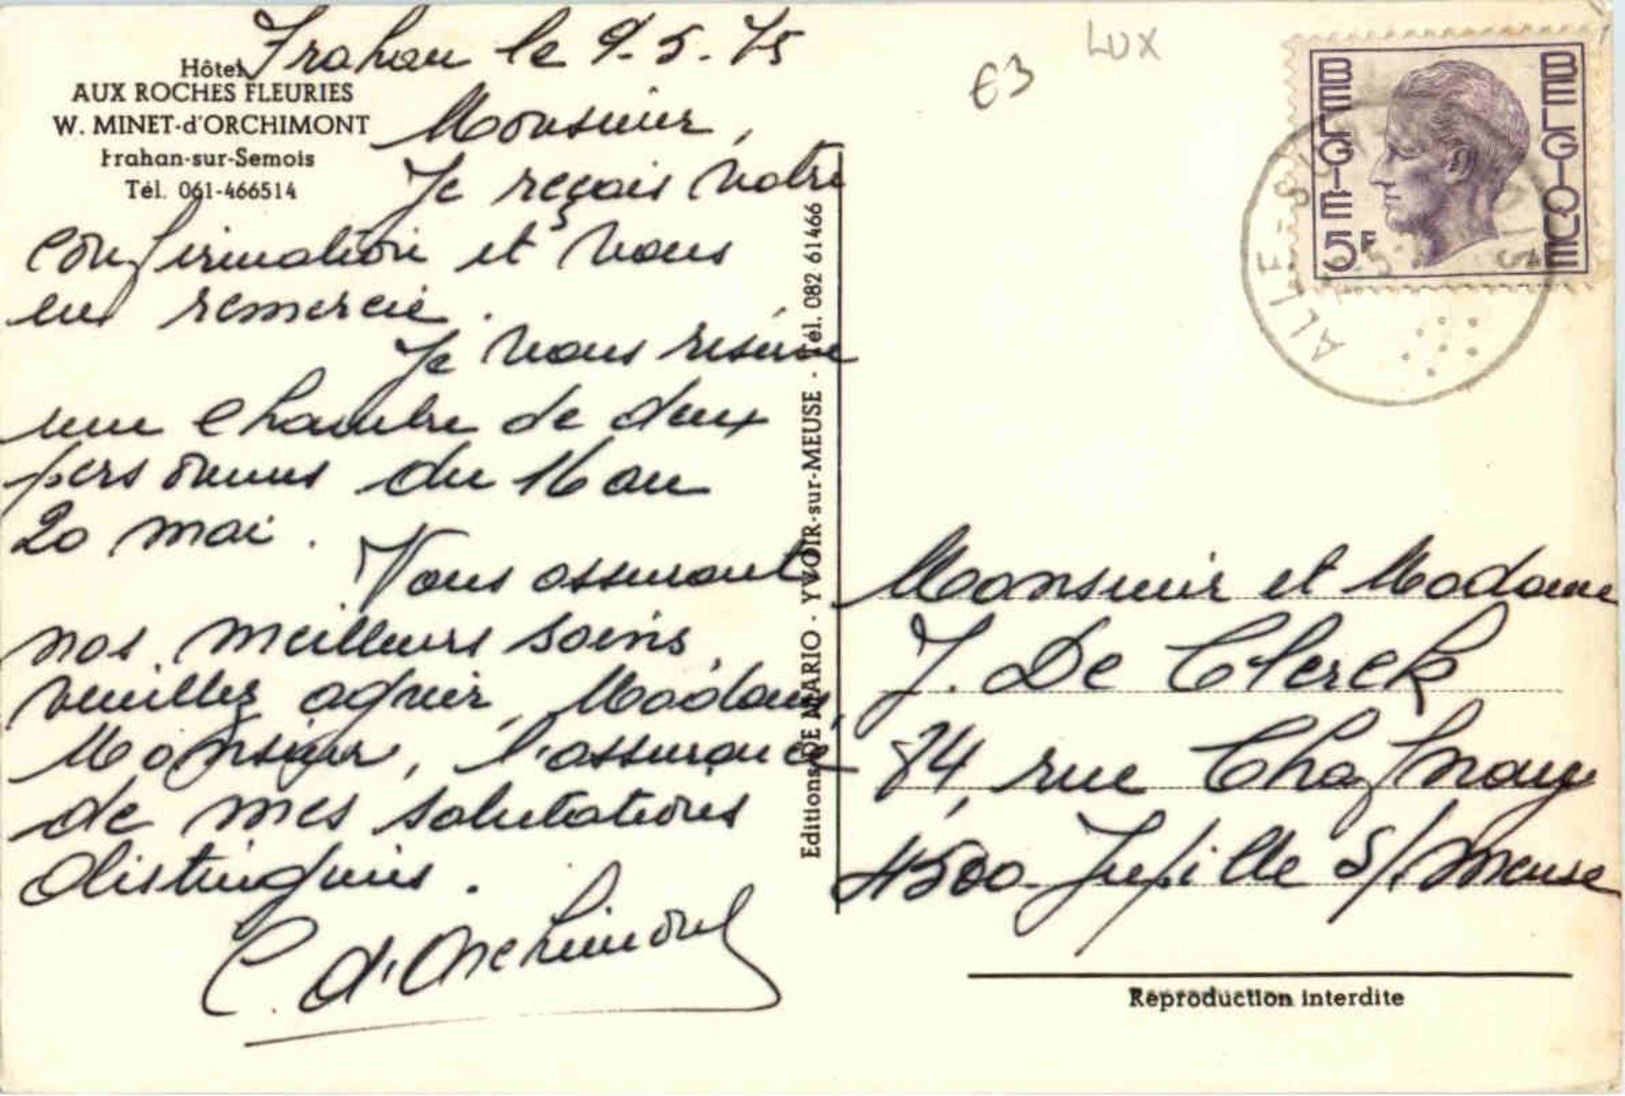 Hôtel
AUX ROCHES FLEURIES
W. MINET-d'ORCHIMONT
Frahan-sur-Semois
Tél. 061-466514
Frahan le 9.5.75
Monsieur,
Je reçois votre
confirmation et vous
en remercie.
Je vous réserve
une chambre de deux
personnes du 16 au
20 mai.
Vous assurant
nos meilleurs soins,
veuillez agréer, Madame,
Monsieur, l'assurance
de mes salutations
distinguées.
C. d'Orchimont
Editions DE MARIO - YVOIR-sur-MEUSE - Tél. 082 61466
€3
LUX
BELGIE
BELGIQUE
5F
ALLE-S
Monsieur et Madame
J. De Clerck
84, rue
4500 Jupille S/Meuse
Reproduction interdite